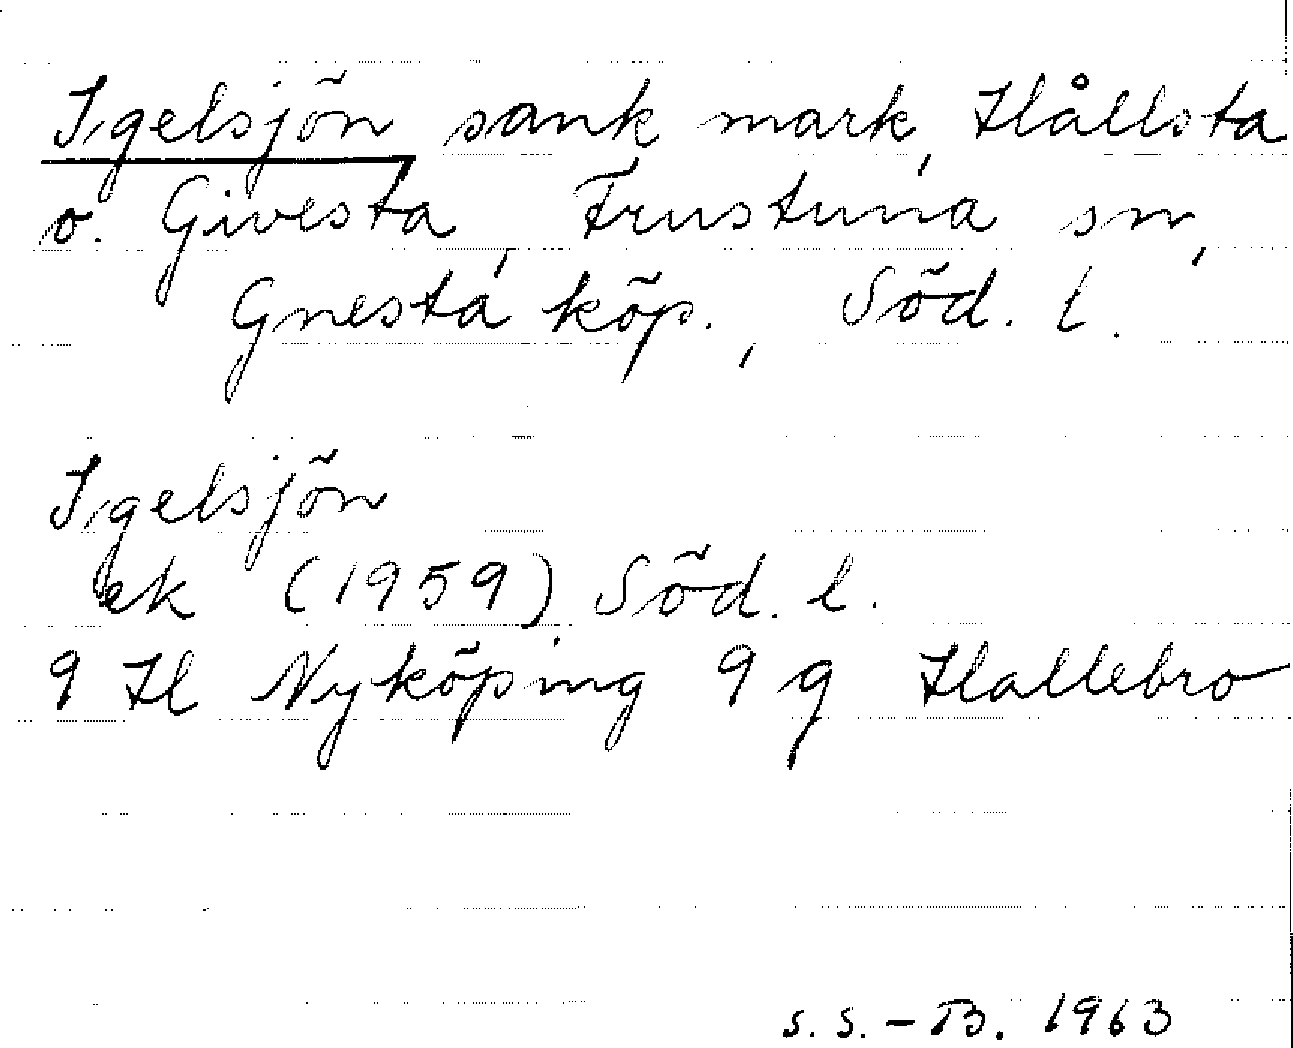 Igelsjön, sank mark, Hållsta
o. Givesta, Frustuna sn,
Gnesta köp., Söd. l.
Igelsjön
ek (1959), Söd. l.
9 H Nyköping 9 g Hallebro
S. S. - B. 1963